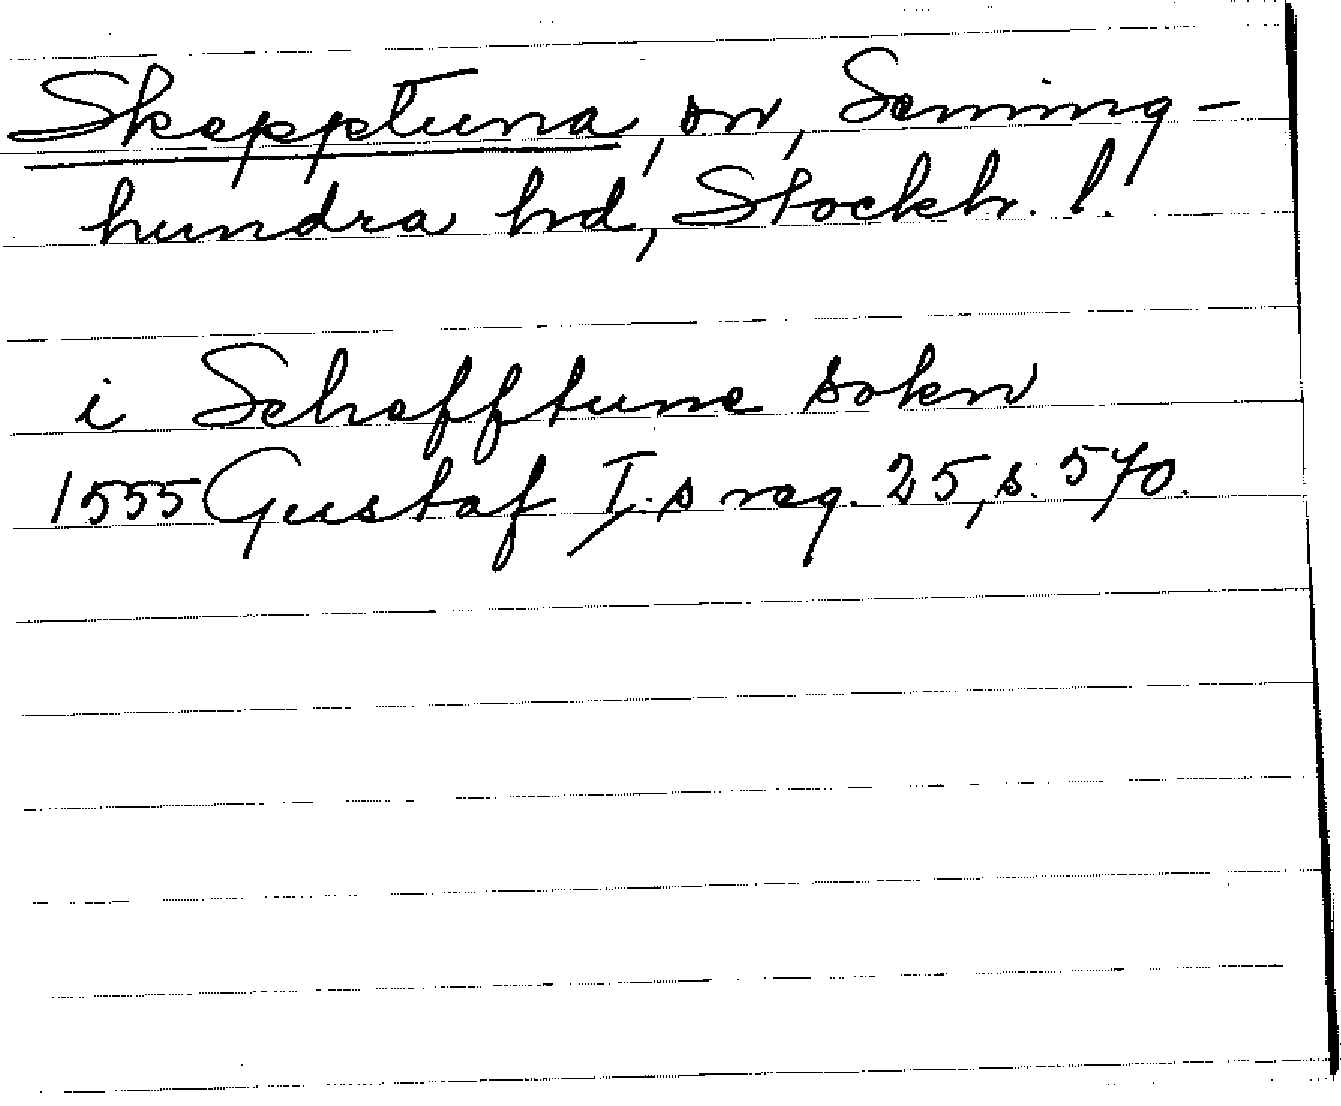 Skepptuna, sn, Seming-
hundra hd, Stockh. l.
i Schefftune sokn
1555 Gustaf I:s reg. 25, s. 570.